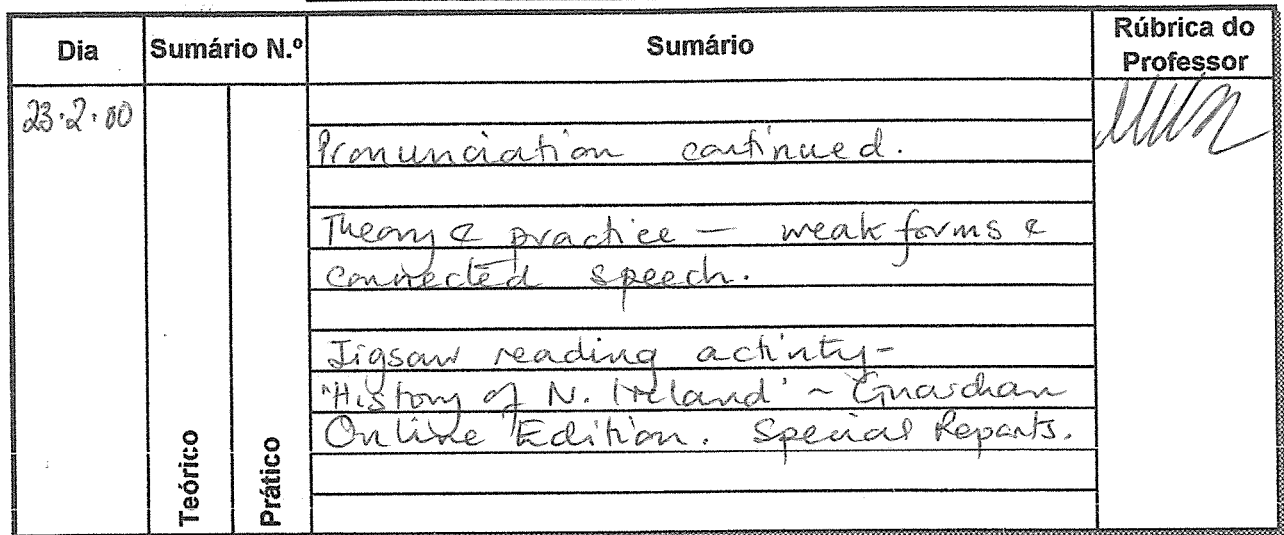 Dia Sumário N.º Sumário Rúbrica do Professor
23.2.00
Pronunciation continued.
Theory & practice — weak forms &
connected speech.
Jigsaw reading activity-
'History of N. Ireland' ~ Guardian
Online Edition. Special Reports.
Teórico
Prático